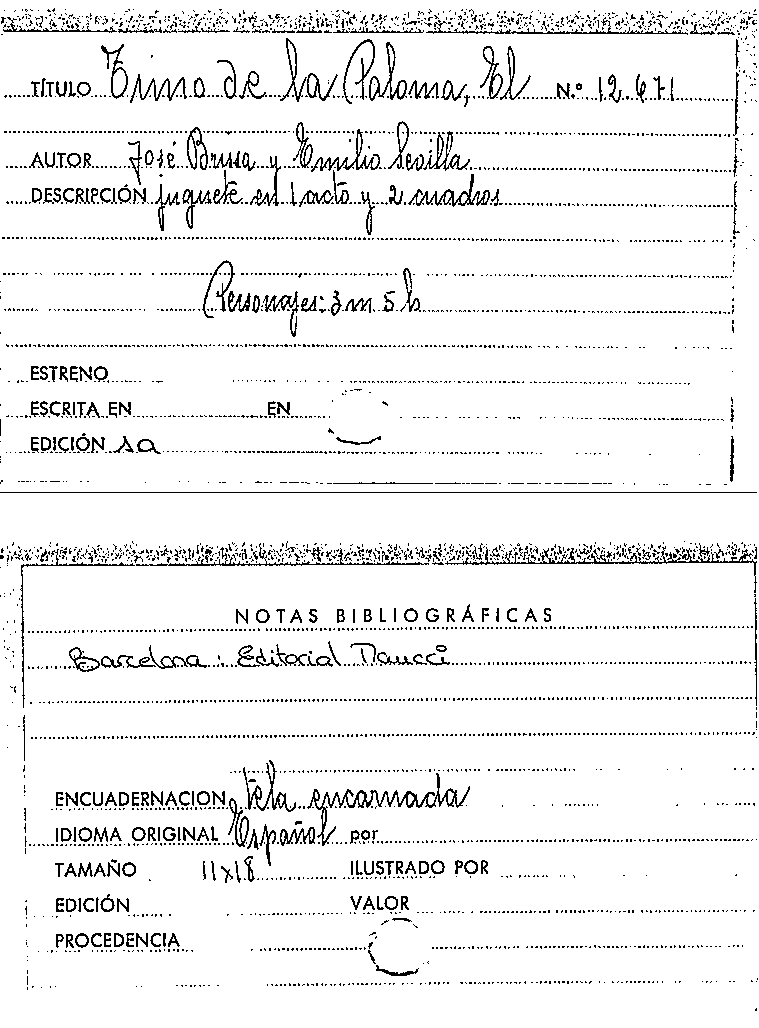 TÍTULO Timo de la Paloma, El N.º 12.671
AUTOR José Brissa y Emilio Sevilla
DESCRIPCIÓN juguete en 1 acto y 2 cuadros
Personajes: 3 m 5 h
ESTRENO
ESCRITA EN EN
EDICIÓN 1a
NOTAS BIBLIOGRÁFICAS
Barcelona : Editorial Maucci
ENCUADERNACION Tela encarnada
IDIOMA ORIGINAL Español por
TAMAÑO 11x18 ILUSTRADO POR
EDICIÓN VALOR
PROCEDENCIA